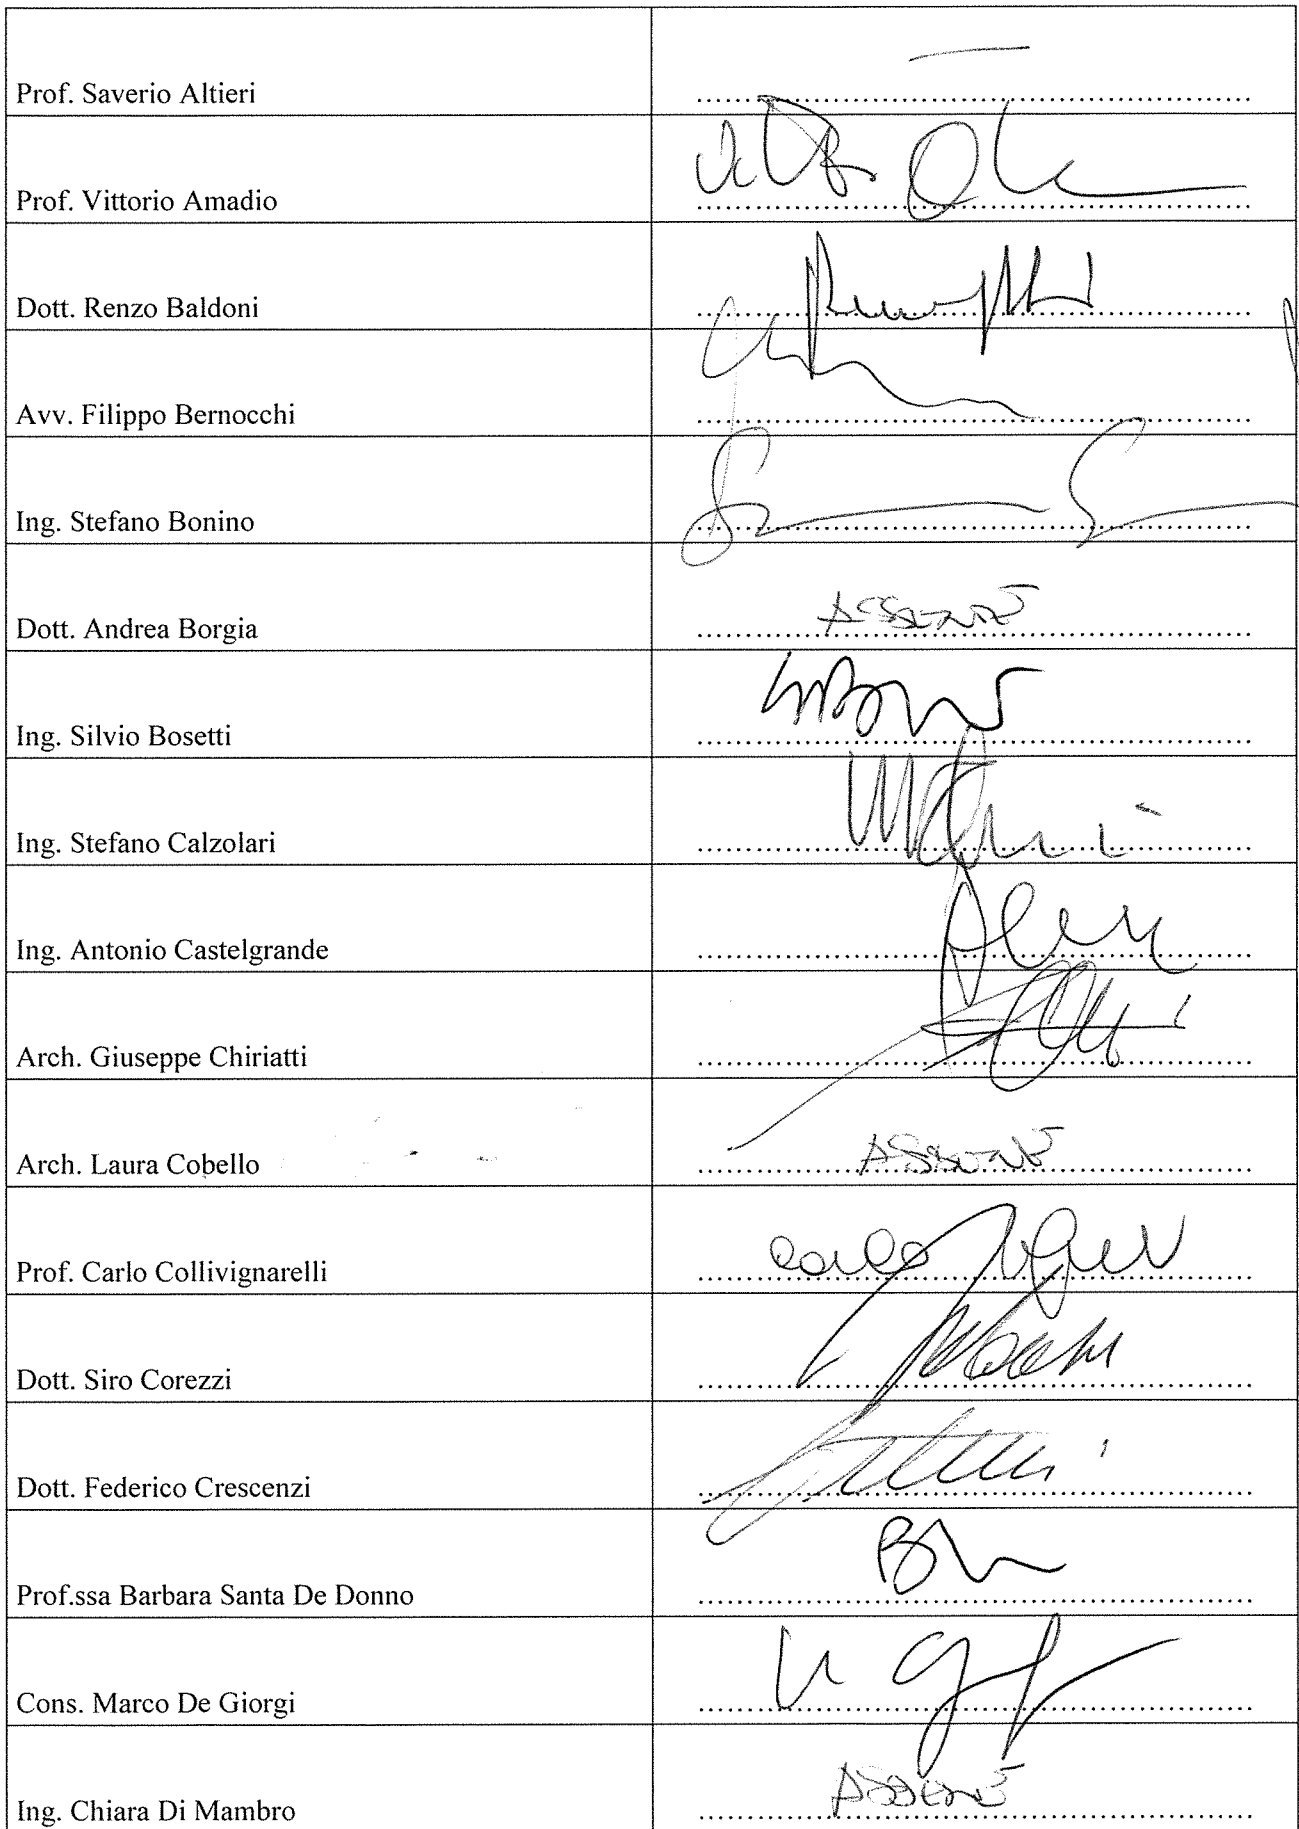 Prof. Saverio Altieri
Prof. Vittorio Amadio
Dott. Renzo Baldoni
Avv. Filippo Bernocchi
Ing. Stefano Bonino
Dott. Andrea Borgia ASSENTE
Ing. Silvio Bosetti
Ing. Stefano Calzolari
Ing. Antonio Castelgrande
Arch. Giuseppe Chiriatti
Arch. Laura Cobello ASSENTE
Prof. Carlo Collivignarelli Carlo
Dott. Siro Corezzi
Dott. Federico Crescenzi
Prof.ssa Barbara Santa De Donno
Cons. Marco De Giorgi
Ing. Chiara Di Mambro ASSENTE